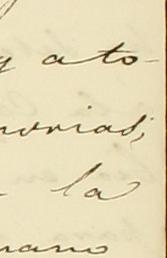 y a to-
morias,
la
mano